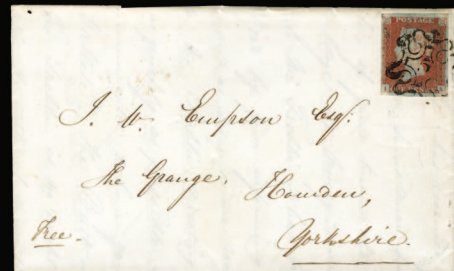 POSTAGE
J. W. Empson Esq:
The Grange, Howden,
Free.
Yorkshire.